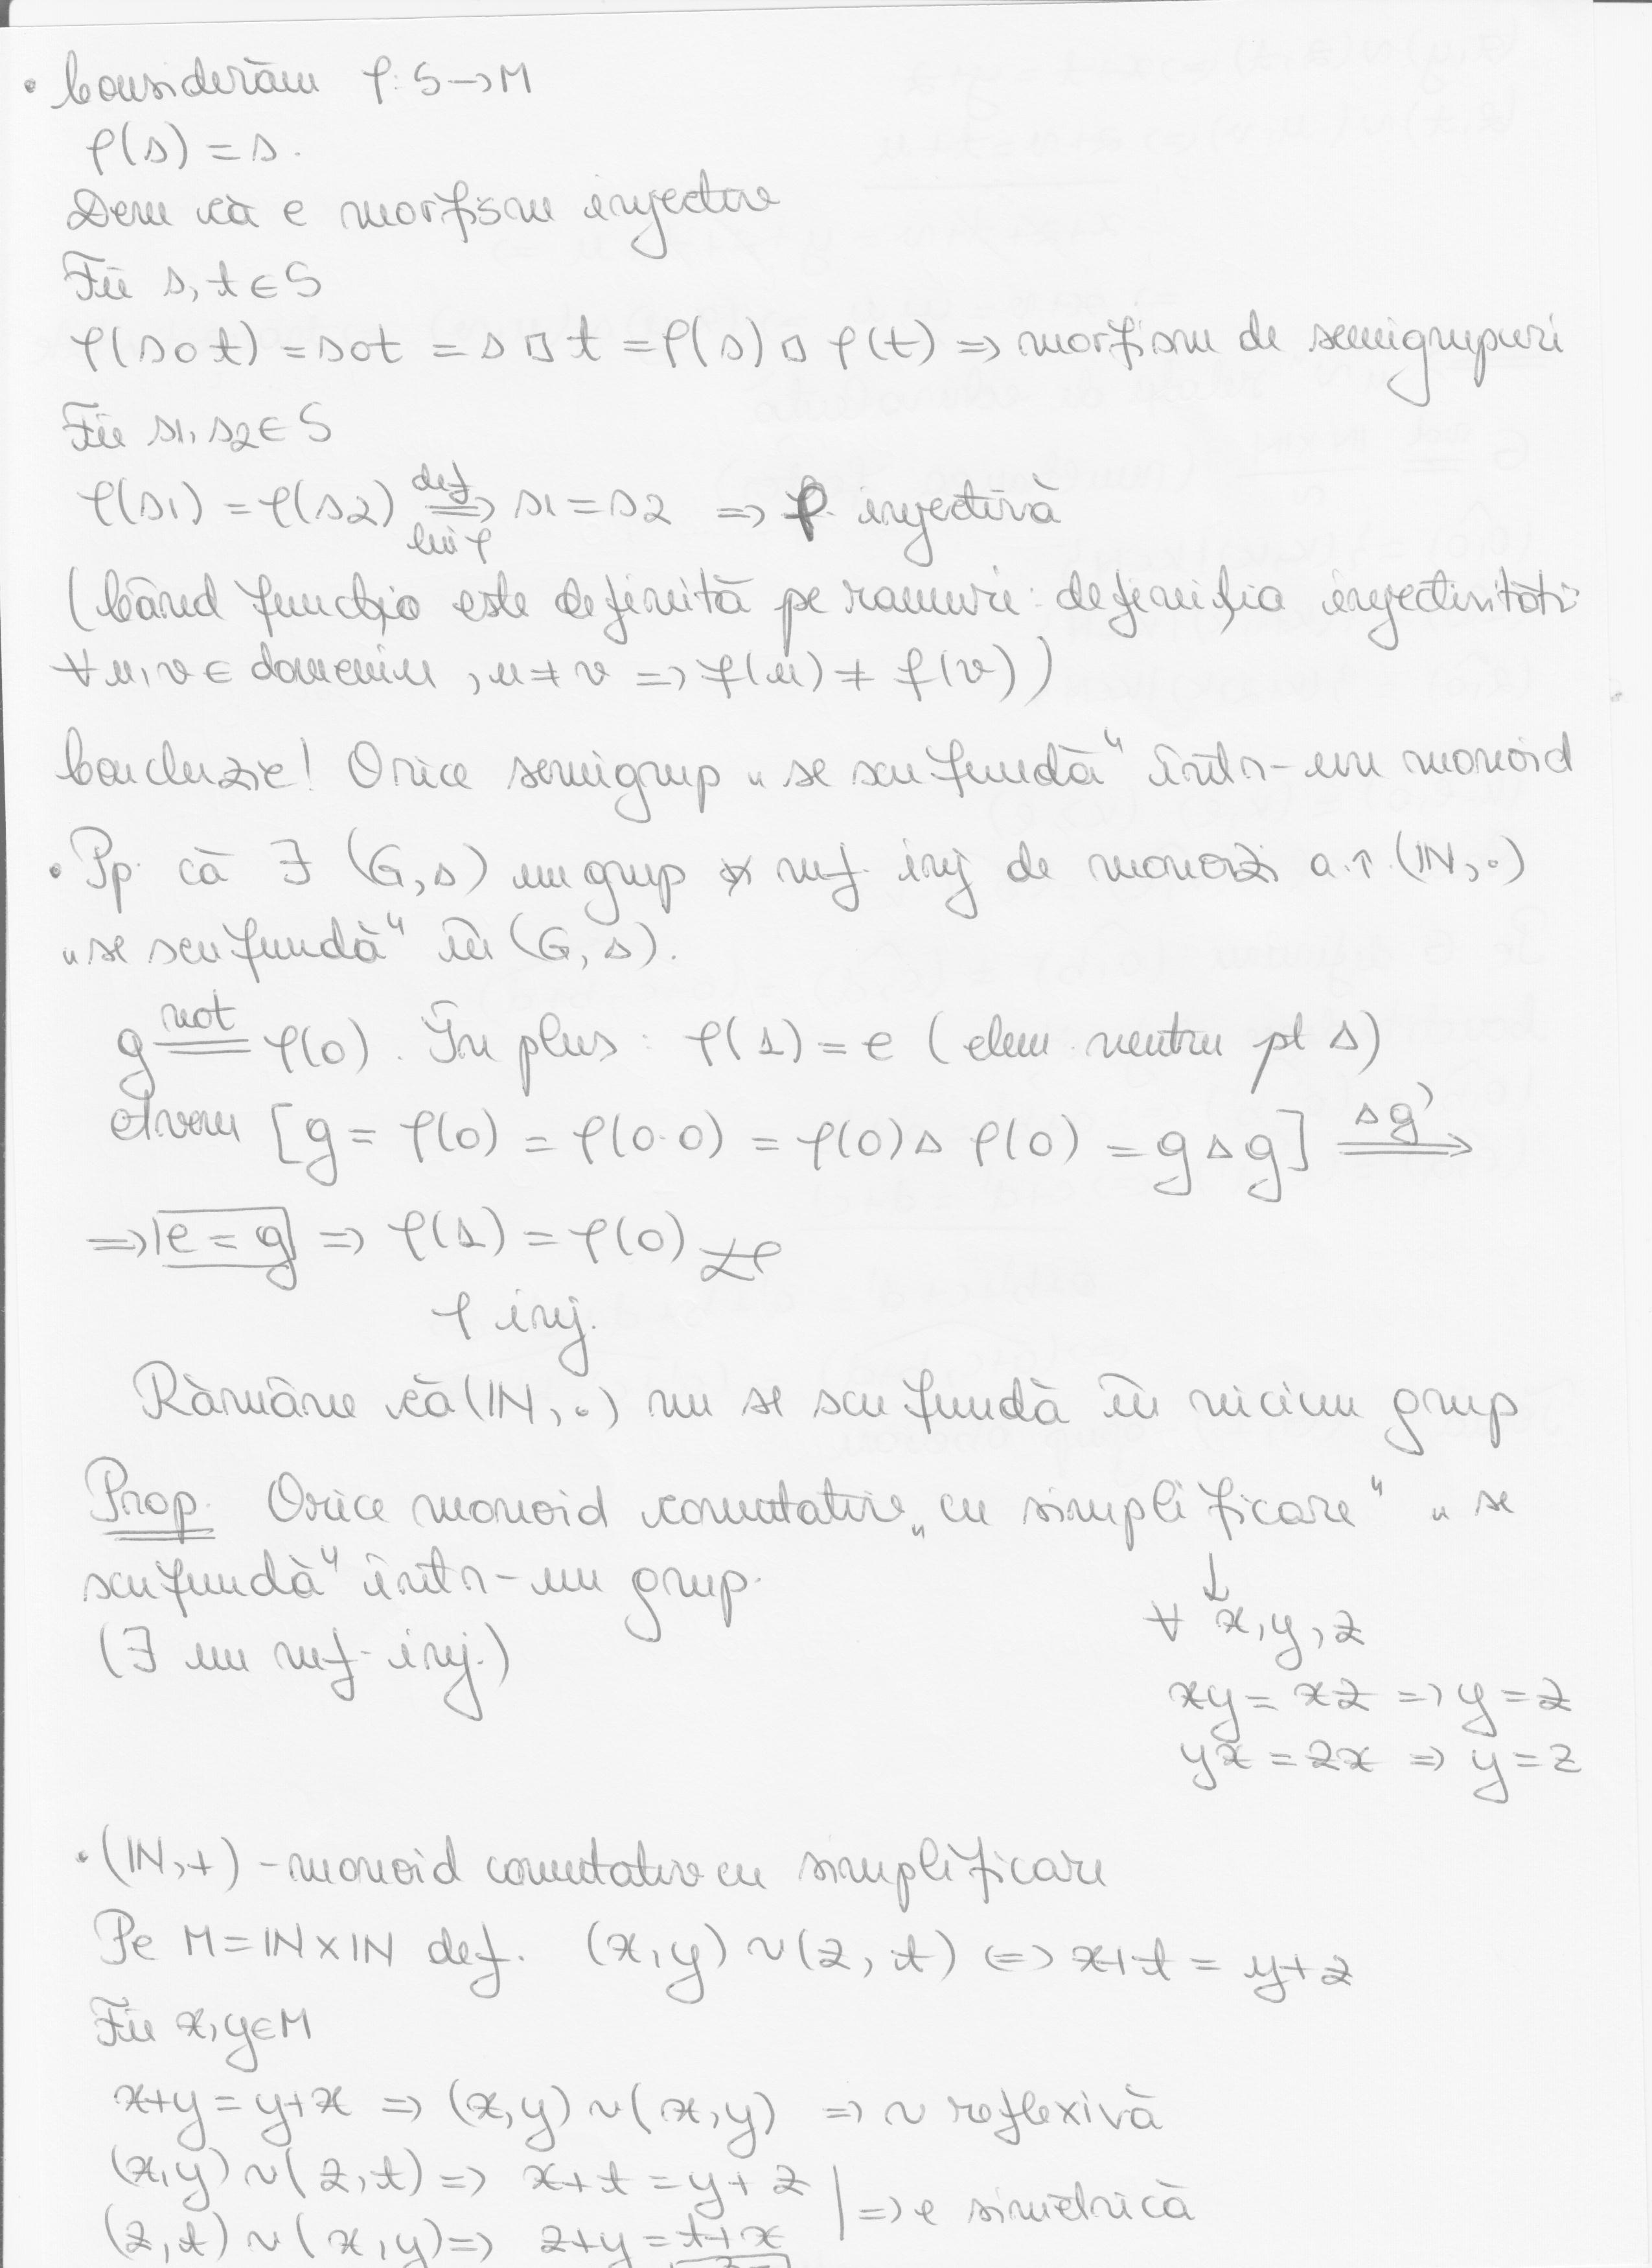 • Considerăm φ: S → M
φ(s) = s.
Dem că e morfism injectiv
Fie s, t ∈ S
φ(s o t) = s o t = s □ t = φ(s) □ φ(t) => morfism de semigrupuri
Fie s1, s2 ∈ S
φ(s1) = φ(s2) =def lui φ=> s1 = s2 => φ injectivă
(Când funcția este definită pe ramuri: definiția injectivității
∀ u, v ∈ domeniu, u ≠ v => f(u) ≠ f(v))
Concluzie! Orice semigrup „se scufundă" într-un monoid
• Pp. că ∃ (G, Δ) un grup mf. inj de monoizi a.î. (ℕ, ·)
„se scufundă" în (G, Δ).
g =not= φ(0). În plus: φ(1) = e (elem neutru pt Δ)
Avem [g = φ(0) = φ(0·0) = φ(0) Δ φ(0) = g Δ g] =Δ g'=>
=> e = g => φ(1) = φ(0)
φ inj.
Rămâne că (ℕ, ·) nu se scufundă în niciun grup
Prop. Orice monoid comutativ „cu simplificare" „se
scufundă" într-un grup.
(∃ un mf. inj.)
↓
∀ x, y, z
xy = xz => y = z
yx = zx => y = z
• (ℕ, +) - monoid comutativ cu simplificare
Pe M = ℕ × ℕ def. (x, y) ~ (z, t) <=> x + t = y + z
Fie x, y ∈ M
x+y = y+x => (x, y) ~ (x, y) => ~ reflexivă
(x, y) ~ (z, t) => x + t = y + z | => e simetrică
(z, t) ~ (x, y) => z + y = t + x